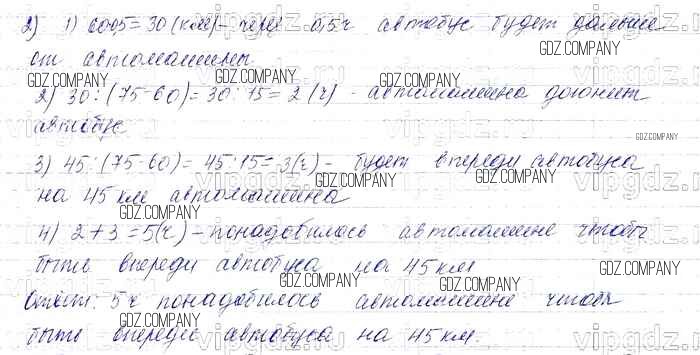 2) 1) 60·0,5=30 (км) - через 0,5ч автобус будет дальше
от автомашины
GDZ.COMPANY GDZ.COMPANY GDZ.COMPANY
2) 30:(75-60)=30:15=2 (ч) - автомашина догонит
автобус
GDZ.COMPANY
3) 45:(75-60)=45:15=3(ч) - будет впереди автобуса
GDZ.COMPANY GDZ.COMPANY GDZ.COMPANY
на 45 км автомашина
GDZ.COMPANY
4) 2+3=5(ч) - понадобилось автомашине чтобы
быть впереди автобуса на 45 км
GDZ.COMPANY GDZ.COMPANY GDZ.COMPANY
Ответ: 5 ч понадобилось автомашине чтобы
GDZ.COMPANY
быть впереди автобуса на 45 км.
GDZ.COMPANY GDZ.COMPANY